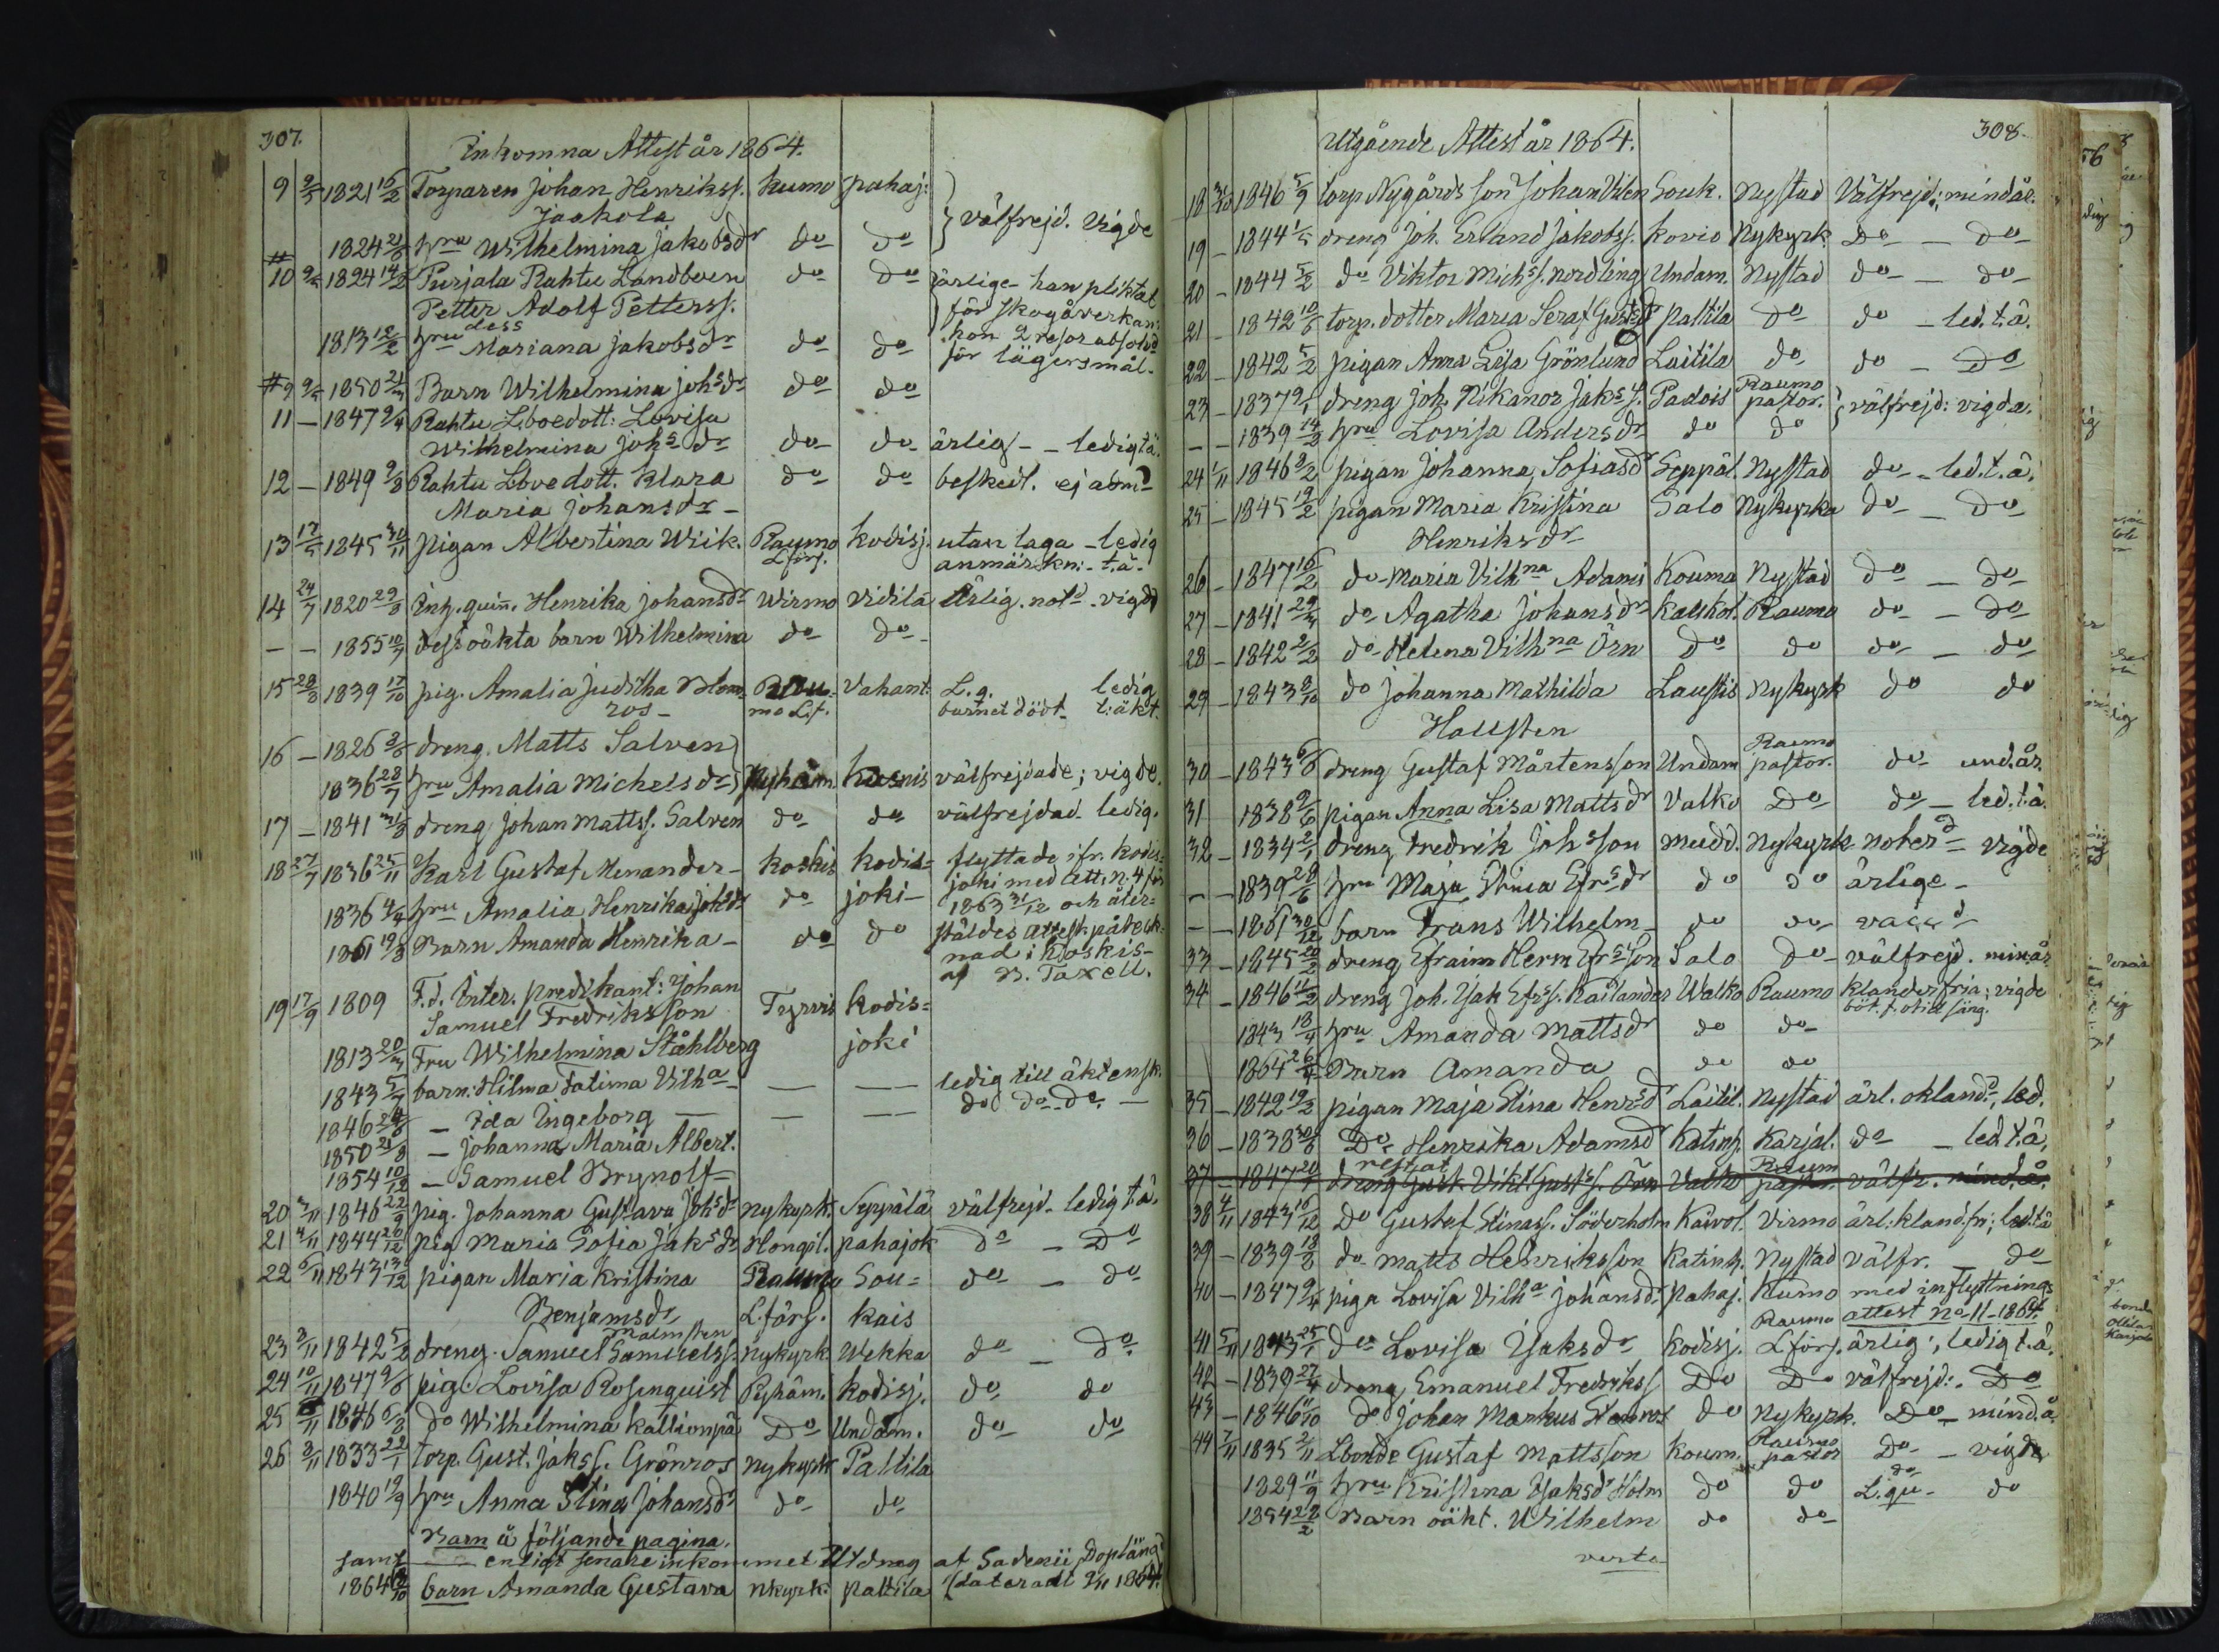 307.
Inkomna Attest år 1864.
9 9/5 1821 15/2 Torparen Johan Henrikss. Kumo pahaj:
Jaakola } välfrejd. vigde
1824 21/8 hru Wilhelmina Jakobsdr do do
10 9/5 1824 14/2 Purjala Rahtu Landboen do do ärlige - han pliktat
Petter Adolf Petterss. för skogåverkan:
1813 12/2 hru dess Mariana Jakobsdr do do hon 2 resor absolvd
för lägersmål.
9 9/5 1850 21/3 Barn Wilhelmina Johsdr do do
11 - 1847 9/4 Rahtu Lboedott: Lovisa
Wilhelmina Johs dr do do ärlig - - ledig t.ä.
12 - 1849 9/8 Rahtu Lboedott. Klara do do beskedl. ej adm.
Maria Johansdr -
13 17/5 1845 30/11 pigan Albertina Wiik. Raumo Kodisj. utan laga - ledig
Lförs. anmärkn: - t.ä.
14 24/7 1820 29/8 Inh. quin. Henrika Johansdr Wirmo Vidilä Ärlig. notd. vigd
- - 1855 10/7 dess oäkta barn Wilhelmina do do -
15 28/8 1839 17/10 pig. Amalia Juditha Blom- Rau- Vahant: L.q. ledig
ros - mo L.f. barnet dödt - t:äkt.
16 - 1826 3/8 dreng. Matts Salven
1836 28/7 hru Amalia Michelsdr Pyhäm. Kusnis välfrejdade; vigde.
17 - 1841 31/8 dreng Johan Mattss. Salven do do välfrejdad - ledig.
18 27/7 1836 25/11 Karl Gustaf Menander - Koskis Kodis= flyttade ifr. Kodis=
joki med att. n: 4 för
1836 4/4 hru Amalia Henrika Johsdr do joki - 1863 31/12 och åter=
1861 19/8 Barn Amanda Henrika - do do ställdes attest. påteck-
nad i Koskis-
af B. Taxell.
19 17/9 1809 F.d. Inter. predikant: Johan
Samuel Fredriksson Tyrvis Kodis=
1813 20/3 Fru Wilhelmina Ståhlberg joki
1843 5/7 barn: Hilma Fatima Vilha - — — ledig till äktensk.
1846 24/8 - Ida Ingeborg — — — do do - do. —
1850 21/8 - Johanna Maria Albert.
1854 10/12 - Samuel Brynolf -
20 3/11 1846 22/9 pig. Johanna Gustava Johsdr Nykyrk. Seppälä välfrejd. ledig t.ä.
21 4/11 1844 20/12 pig Maria Sofia Jaksdr Hongil. pahajok do - Do
22 6/11 1843 13/12 pigan Maria Kristina Raumo Sou= do - do
Benjamsdr L.förs. kais
Malmsten
23 3/11 1842 5/2 dreng. Samuel Samuelss. Nykyrk Wekka do - do.
24 10/11 1847 9/8 pig. Lovisa Rosenquist Pyhäm. Kodisj. do do
25 /11 1846 6/8 do Wilhelmina Kallionpä Do Undam. do do
26 3/11 1833 22/1 torp. Gust. Jakss. Grönros Nykyrk Paltila
1840 19/9 hru Anna Stina Johansdr do do
Barn å följande pagina.
samt enligt senare inkommet Utdrag af Sadenii Doplängd
1864 /10 barn Amanda Gustava Nkyrk. paltila (dateradt 9/11 1864.
308.
Utgående Attest år 1864.
18 31/10 1846 5/9 torp. Nygårds son Johan Vilen Souk. Nystad Välfrejd: mindår.
19 - 1844 1/5 dreng Joh. Erland Jakobss. Kovio Nykyrk Do - Do
20 - 1844 5/2 do Viktor Michss. Nordling Undam. Nystad do - do
21 - 1842 10/8 torp. dotter Maria Seraf. Gustsdr Paltila Do do - led. t.ä.
22 - 1842 5/2 pigan Anna Lisa Grönlund Laitila do do - Do
23 - 1837 9/1 dreng Joh. Nikanor Jakss. Padois Raumo pastor. } välfrejd: vigda.
- - 1839 14/2 hru Lovisa Andersdr do do
24 1/11 1846 9/2 pigan Johanna Sofiasdr Seppäl. Nystad do - led. t.ä.
25 - 1845 19/2 pigan Maria Kristina Salo Nykyrka do - Do
Henriksdr
26 - 1847 16/2 do - Maria Vilhna Adamis Kouma Nystad do - do
27 - 1841 29/3 do Agatha Johansdr Kaukol. Raumo do - do
28 - 1842 2/2 do - Helena Vilhna Örn Do do do - do
29 - 1843 8/10 do Johanna Mathilda Laustis Nykyrk do do
Hallsten
30 - 1843 6/8 dreng Gustaf Mårtensson Undam Raumo pastor. do und. år.
31 1838 9/6 pigan Anna Lisa Mattsdr Valko Do do - led. t.ä.
32 - 1834 2/1 dreng Fredrik Johsson Mudd. Nykyrk noterd - vigde
- - 1839 28/6 hru Maja Stina Efrsdr do do ärlige -
- - 1861 30/12 barn Frans Wilhelm - do do vaccd
33 - 1845 20/2 dreng Efraim Herm Efrsson Salo Do välfrejd. min.år
34 - 1846 11/2 dreng Joh. Isak Efrss. Kailander Walko Raumo klanderfria; vigde
böt. f. otid. säng.
1843 18/4 hru Amanda Mattsdr do do
1864 26/4 Barn Amanda do do
35 - 1842 19/2 pigan Maja Stina Henrsdr Laitil. Nystad ärl. okland., led.
36 - 1838 30/8 Do Henrika Adamsdr Katinh. Karjal. do - led. t.ä.
restat Raum
37 - 1847 20/7 dreng Gust. Vikt. Gustss. Örn Valko pastor. välfr. mind.å.
38 4/11 1843 16/12 Do Gustaf Stinass. Söderholm Kaivol. Virmo ärl: kland.fri; led.t.ä
39 - 1839 18/2 do Matts Henriksson Katinh. Nystad välfr. - do
40 - 1847 9/4 piga Lovisa Vilha Johansdr. pahaj. Kumo med inflyttnings
attest No 11 - 1864.
41 5/11 1843 25/1 do Lovisa Isaksdr Kodisj. Raumo Lförs. ärlig; ledig t.ä.
42 - 1839 27/4 dreng Emanuel Fredrikss Do Do välfrejd:. Do
43 - 1846 11/10 do Johan Markus Stenros do Nykyrk. Do - mind.å.
44 7/11 1835 2/11 Lbonde Gustaf Mattsson Koum. Raumo pastor Do - vigda
1829 11/9 hru Kristina Isaksdr Holm do do do L.qu - do
1854 22/2 Barn oäkt. Wilhelm do do
verte